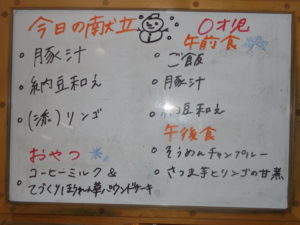 今日の献立
・豚汁
・納豆和え
・(添)リンゴ
おやつ
・コーヒーミルク&
てづくりほうれん草パウンドケーキ
0才児
午前食
・ご飯
・豚汁
・納豆和え
午後食
・そうめんチャンプルー
・さつま芋とリンゴの甘煮